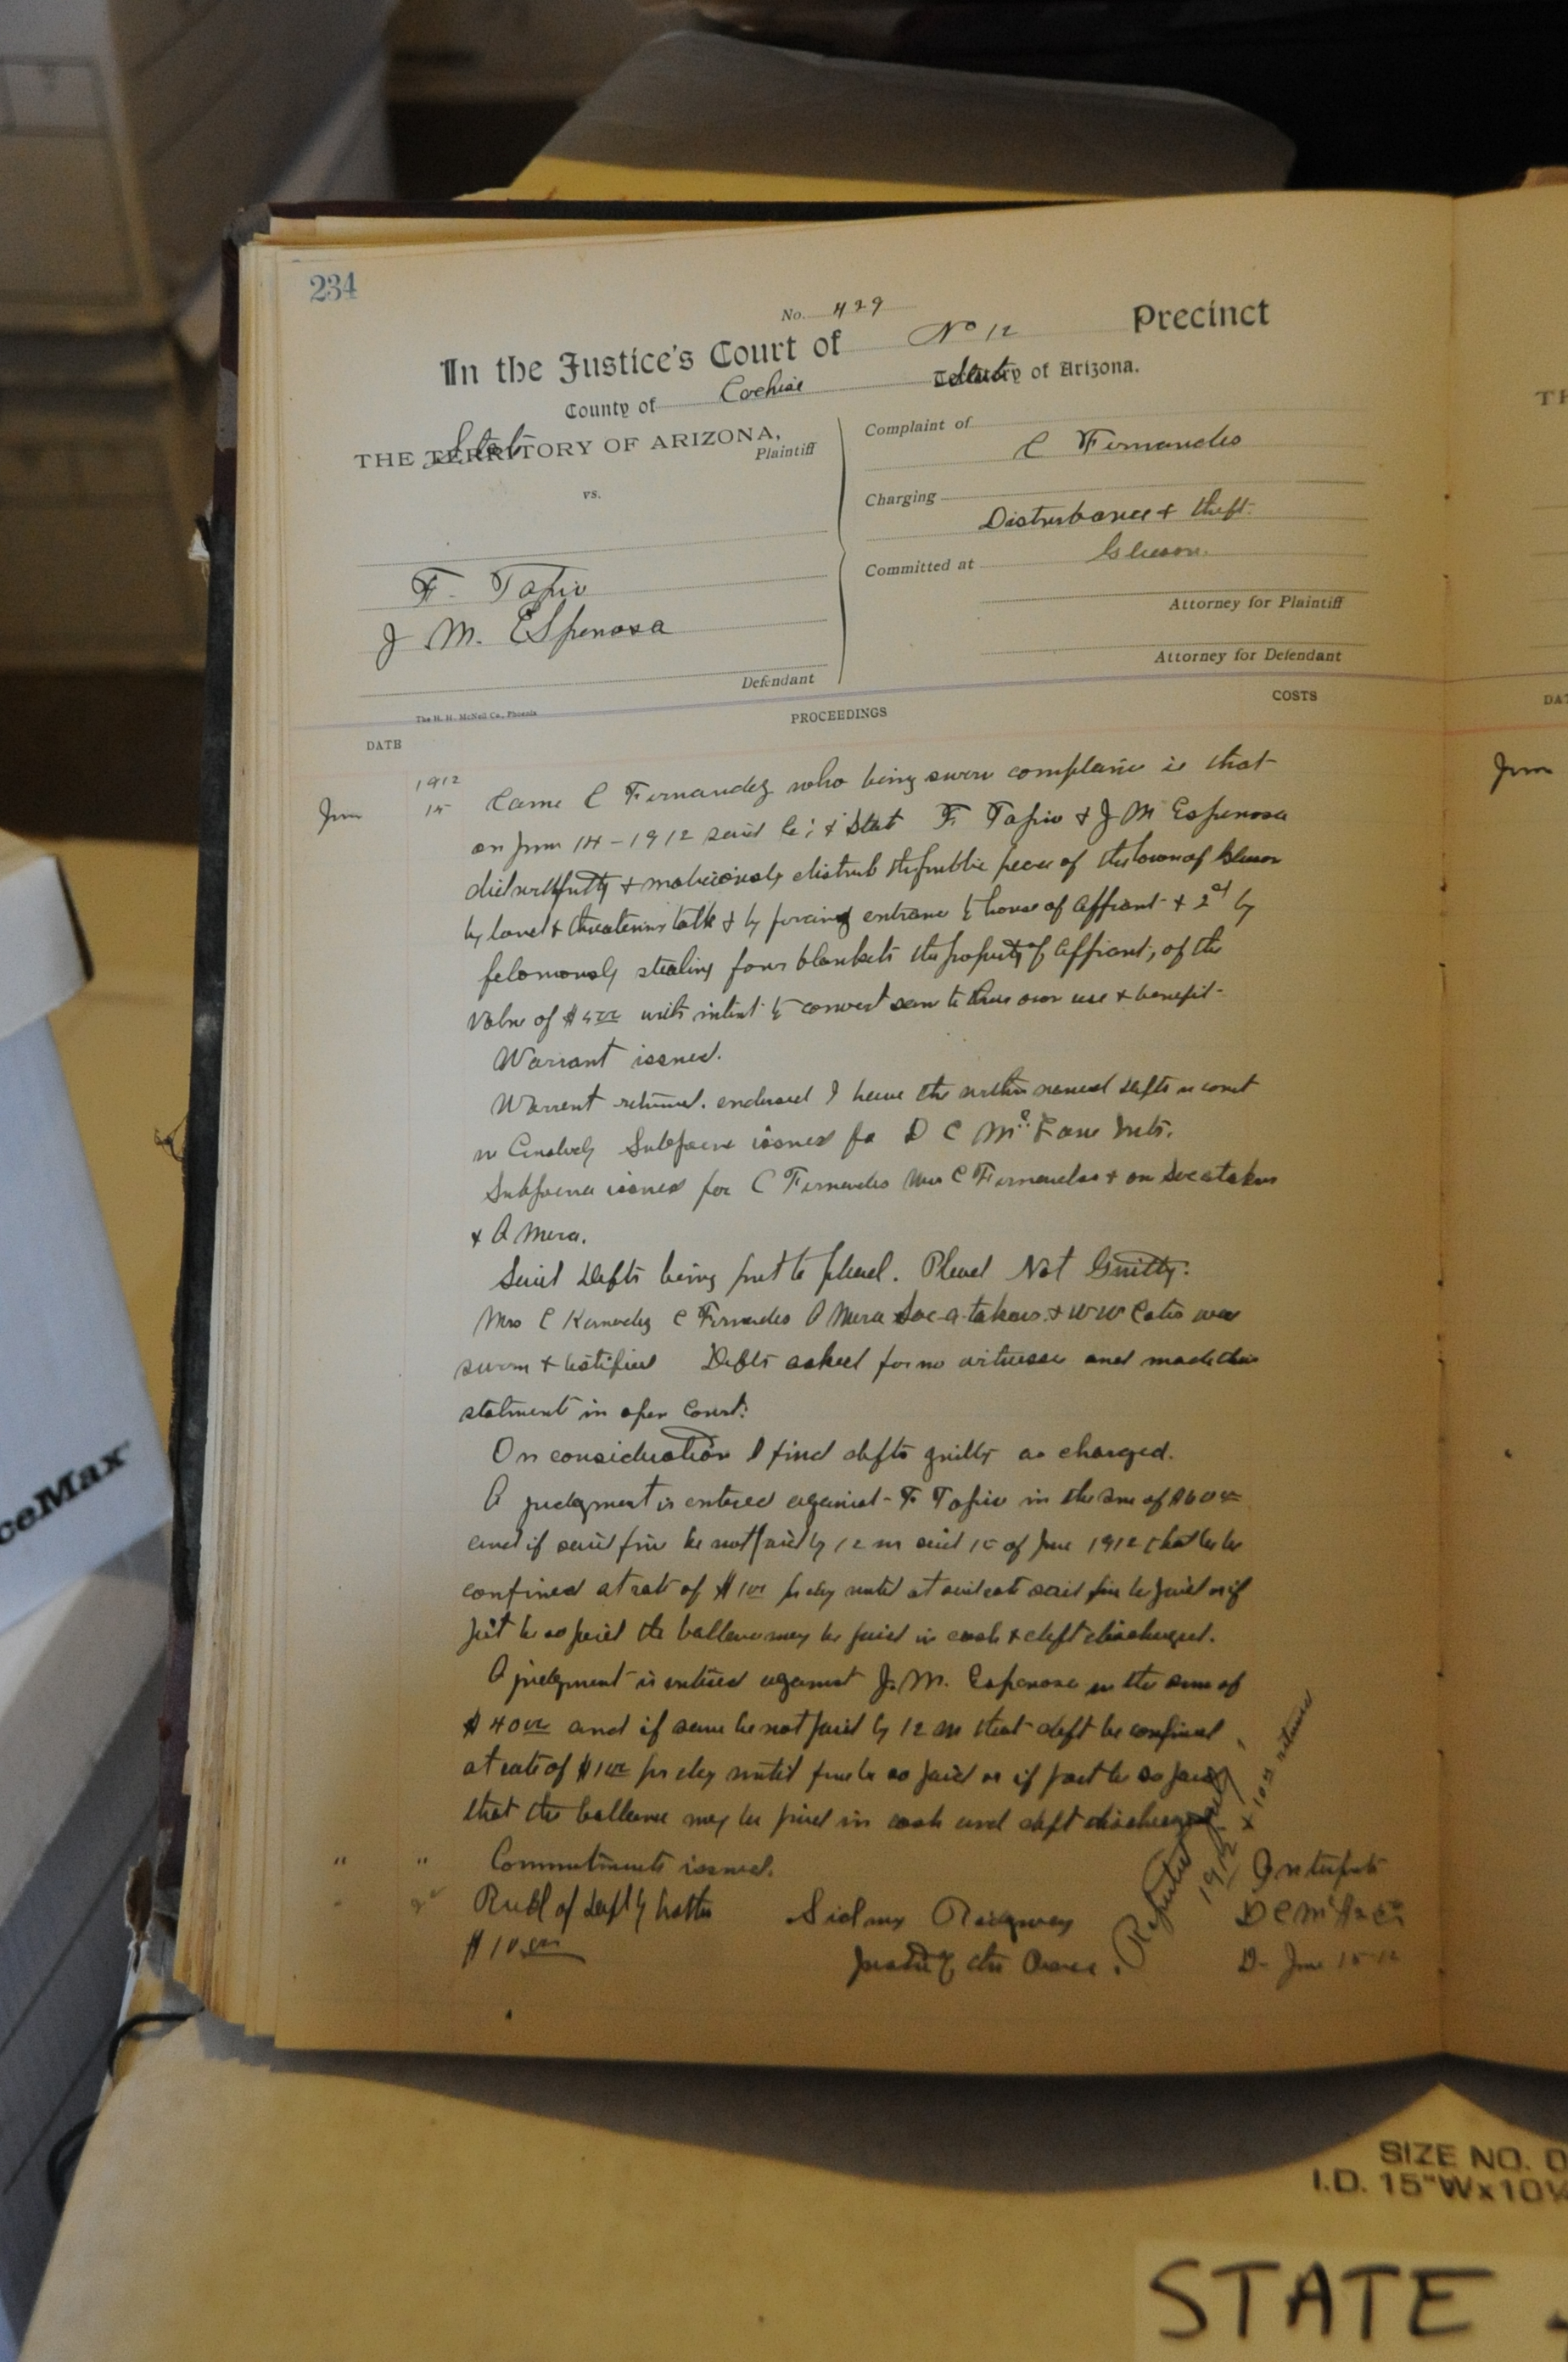 234
No. 429
In the Justice's Court of No 12 Precinct
County of Cochise State Territory of Arizona.
State
THE TERRITORY OF ARIZONA,
Plaintiff
vs.
F. Tapio
J M. Espenosa
Defendant
Complaint of
C Fernandes
Charging
Disturbance & theft.
Committed at Gleeson.
Attorney for Plaintiff
Attorney for Defendant
The H. H. McNeil Co., Phoenix
DATE PROCEEDINGS COSTS
1912
June 15 Came C Fernandez who being sworn complains is that
on June 14 - 1912 said Co; & State F. Tapio & J M Espenosa
did willfully & maliciously disturb the public peace of the town of Gleeson
by loud & threatening talk & by forcing entrance to house of affiant & 2nd by
feloniously stealing four blankets the property of affiant, of the
value of with intent to convert same to their own use & benefit
Warrant issued.
Warrent returned. endorsed I have the within named defts in court
Subpoena issued for D C Mc
Subpoena issued for C Fernandes Mrs C Fernandes &
& A Mera.
Said Defts being put to plead. Plead Not Guilty.
Mrs C C Fernandes A Mera & W W were
sworn & testified Defts asked for no witnesses and made their
statment in open Court.
On consideration I find defts guilty as charged.
A judgment is entered against F Tapio in the sum of $60 00
and if said fine be not paid by 12 m said 15 of June 1912 that he be
confined at rate of $1 00 per day until at said rate said fine be paid or if
part be so paid the ballance may be paid in cash & deft discharged.
A judgment is entered against J. M. Espenosa in the sum of
$40 00 and if same be not paid by 12 m that deft be confined
at rate of $1 00 per day until fine be so paid or if part be so paid
that the ballance may be paid in cash and deft discharged
" " Commitments issued.
Recd of deft by
$10.00
Sidney Ridgway
Justice of the Peace.
& 10 00 returned
D C Mc
D- June 15-12
June
ceMax
SIZE NO. 0
I.D. 15"Wx10¼
STATE